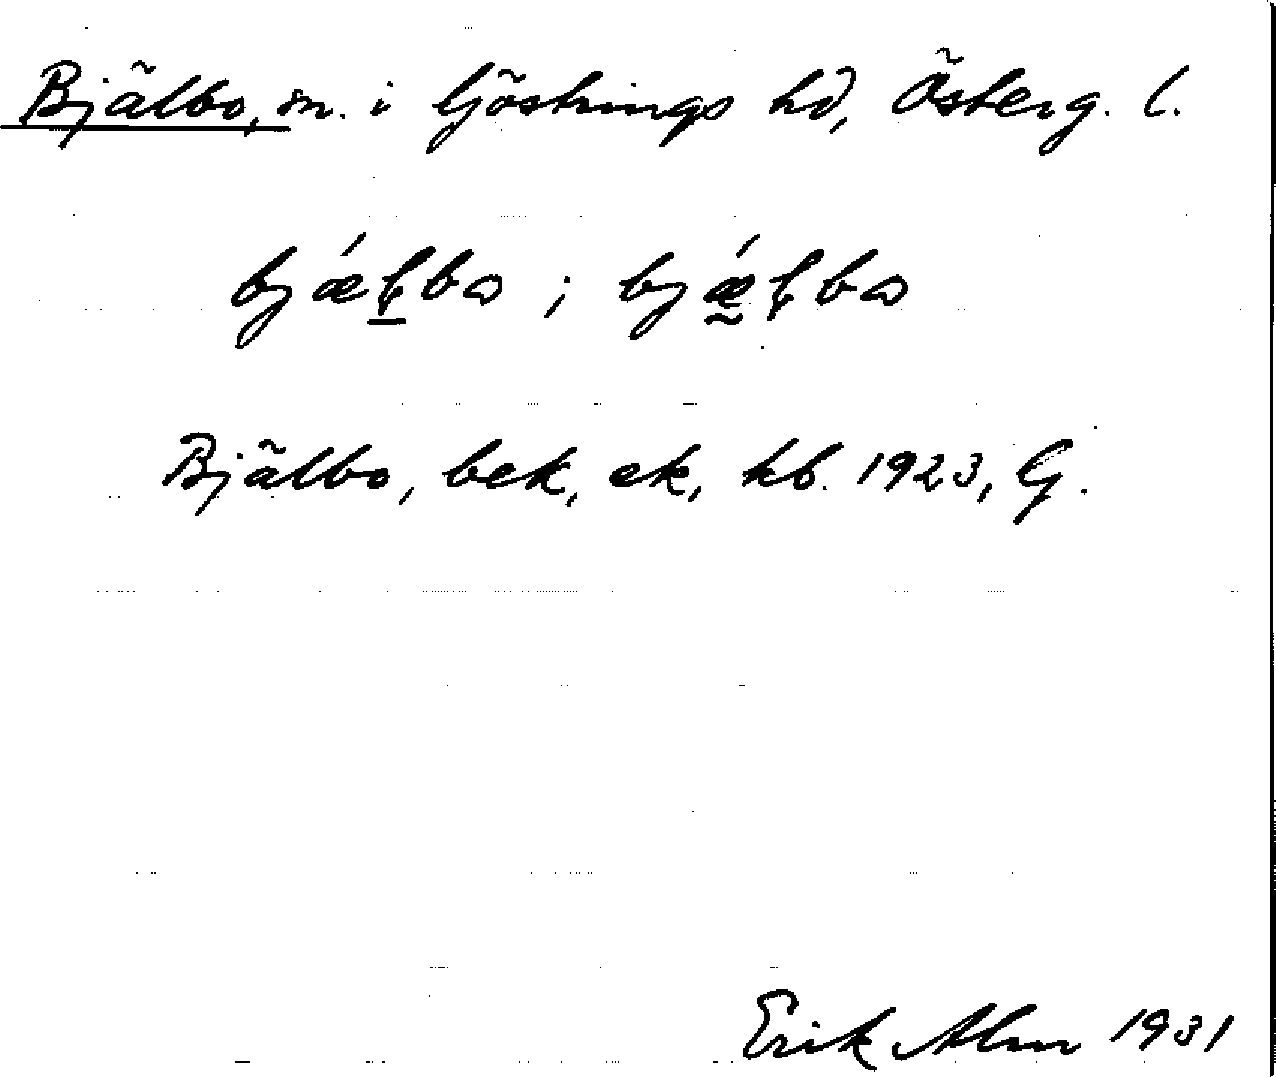 Bjälbo, sn. i Göstrings hd, Österg. l.
bjǽɭbo ; bjǽɭbo
Bjälbo, bek, ek, kb. 1923, G.
Erik Alm 1931